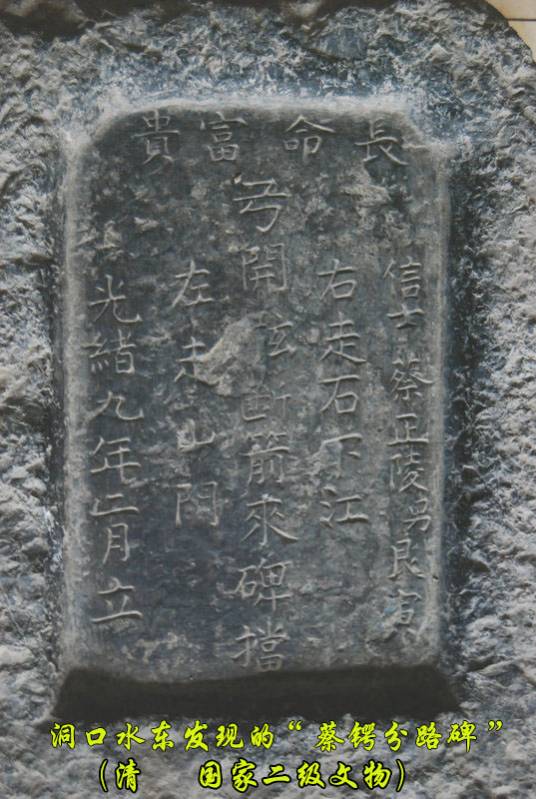 長命富貴
信士蔡正陵男艮寅
右走石下江
弓開弦断箭來碑擋
左走山門
光緒九年二月立
洞口水东发现的“蔡锷分路碑”
（清 国家二级文物）